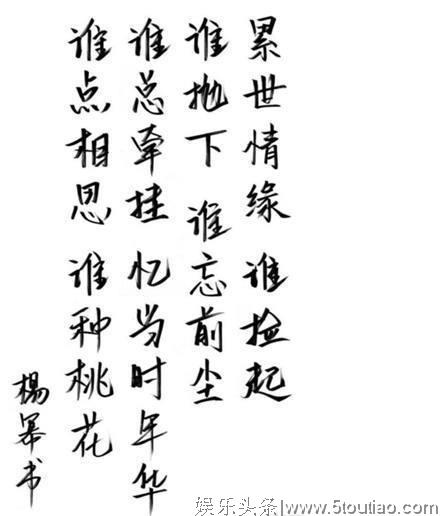 累世情缘 谁捡起
谁抛下 谁忘前尘
谁总牵挂 忆当时年华
谁点相思 谁种桃花
楊幂书
娱乐头条|www.5toutiao.com